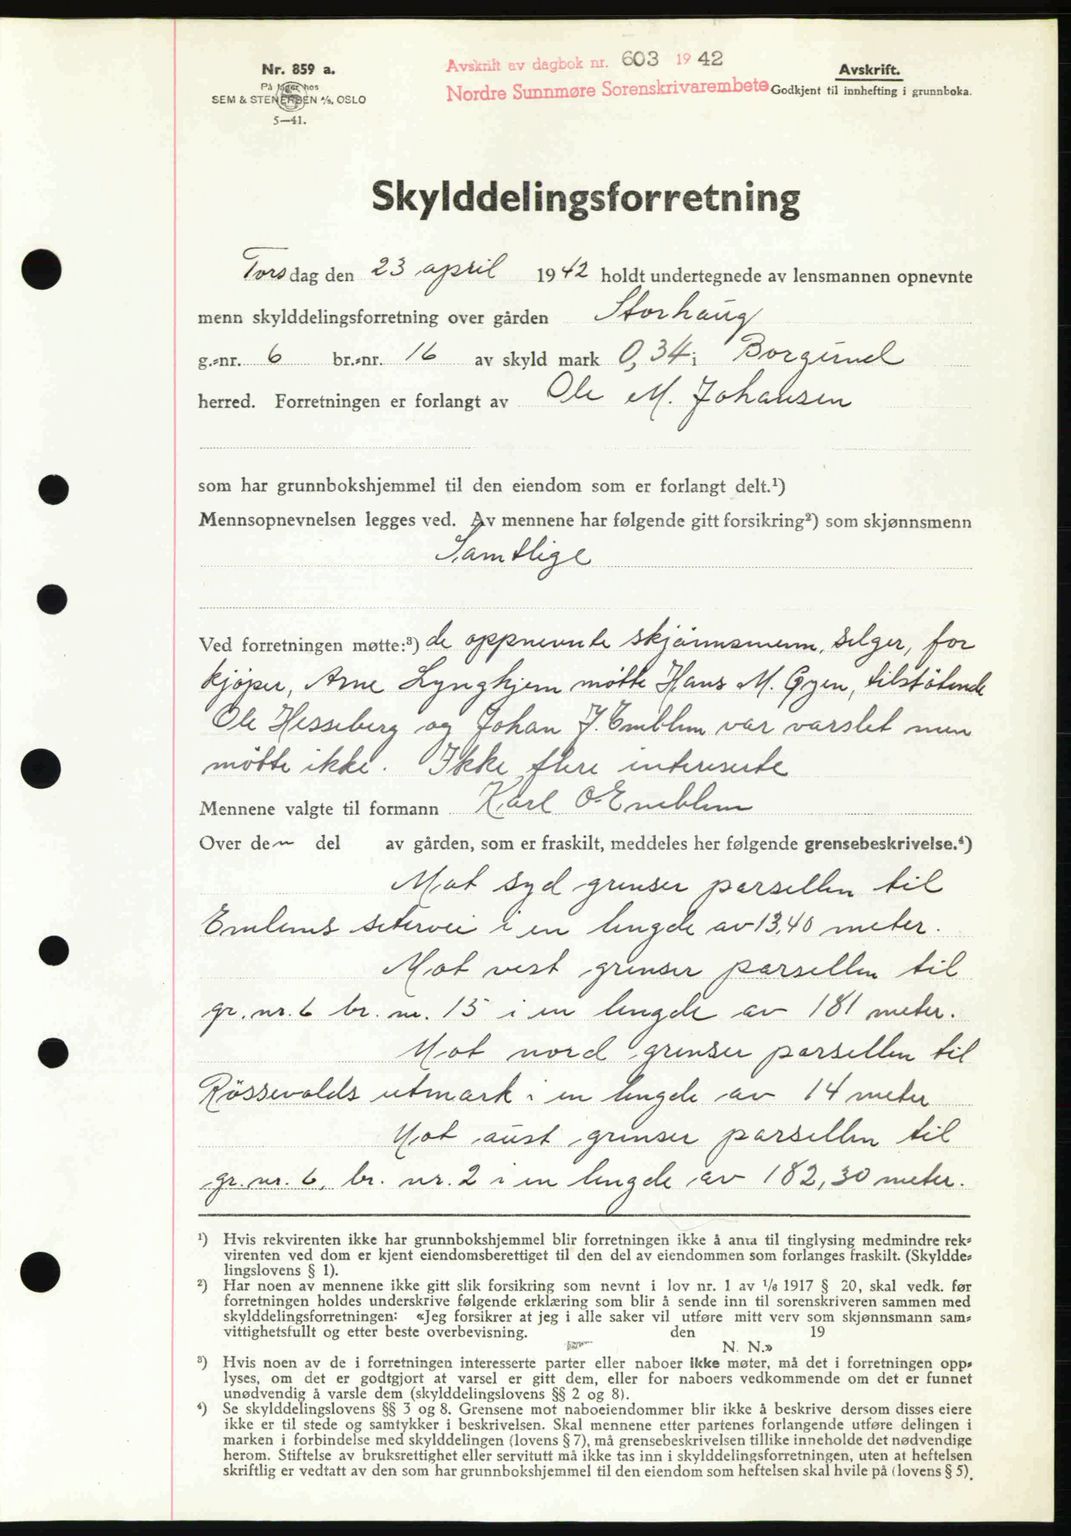 Nr. 859 a.
På lager hos
SEM & STENERSEN A/S, OSLO
5—41.
Avskrift av dagbok nr. 603 1942
Nordre Sunnmøre Sorenskrivarembete
Avskrift.
Godkjent til innhefting i grunnboka.
Skylddelingsforretning
Torsdag den 23 april 1942 holdt undertegnede av lensmannen opnevnte
menn skylddelingsforretning over gården Storhaug
g.-nr. 6 br.-nr. 16 av skyld mark 0,34 i Borgund
herred. Forretningen er forlangt av Ole M. Johansen
som har grunnbokshjemmel til den eiendom som er forlangt delt.¹)
Mennsopnevnelsen legges ved. Av mennene har følgende gitt forsikring²) som skjønnsmenn
Samtlige
Ved forretningen møtte:³) de oppnevnte skjönnsmenn, selger, for
kjøper, Arne Lynghjem møtte Hans M. Gjen, tilstøtende
Ole Hesseberg og Johan J. Emblem var varslet men
møtte ikke. Ikke flere intereserte
Mennene valgte til formann Karl O. Emblem
Over den del av gården, som er fraskilt, meddeles her følgende grensebeskrivelse.⁴)
Mot syd grenser parsellen til
Emlems setervei i en lengde av 13,40 meter.
Mot vest grenser parsellen til
gr. nr. 6 br. nr. 15 i en lengde av 181 meter.
Mot nord grenser parsellen til
Røssevolds utmark i en lengde av 14 meter
Mot aust grenser parsellen til
gr. nr. 6, br. nr. 2 i en lengde av 182,30 meter.
¹) Hvis rekvirenten ikke har grunnbokshjemmel blir forretningen ikke å anta til tinglysing medmindre rek-
virenten ved dom er kjent eiendomsberettiget til den del av eiendommen som forlanges fraskilt. (Skyldde-
lingslovens § 1).
²) Har noen av mennene ikke gitt slik forsikring som nevnt i lov nr. 1 av 1/6 1917 § 20, skal vedk. før
forretningen holdes underskrive følgende erklæring som blir å sende inn til sorenskriveren sammen med
skylddelingsforretningen: «Jeg forsikrer at jeg i alle saker vil utføre mitt verv som skjønnsmann sam-
vittighetsfullt og etter beste overbevisning. den 19
N. N.»
³) Hvis noen av de i forretningen interesserte parter eller naboer ikke møter, må det i forretningen opp-
lyses, om det er godtgjort at varsel er gitt dem, eller for naboers vedkommende om det er funnet
unødvendig å varsle dem (skylddelingslovens §§ 2 og 8).
⁴) Se skylddelingslovens §§ 3 og 8. Grensene mot naboeiendommer blir ikke å beskrive dersom disses eiere
ikke er til stede og samtykker i beskrivelsen. Skal mennene etter partenes forlangende utføre delingen i
marken i forbindelse med skylddelingen (lovens § 7), må grensebeskrivelsen tillike inneholde det nødvendige
herom. Stiftelse av bruksrettighet eller servitutt må ikke tas inn i skylddelingsforretningen, uten at heftelsen
skriftlig er vedtatt av den som har grunnbokshjemmel til den eiendom som heftelsen skal hvile på (lovens § 5).